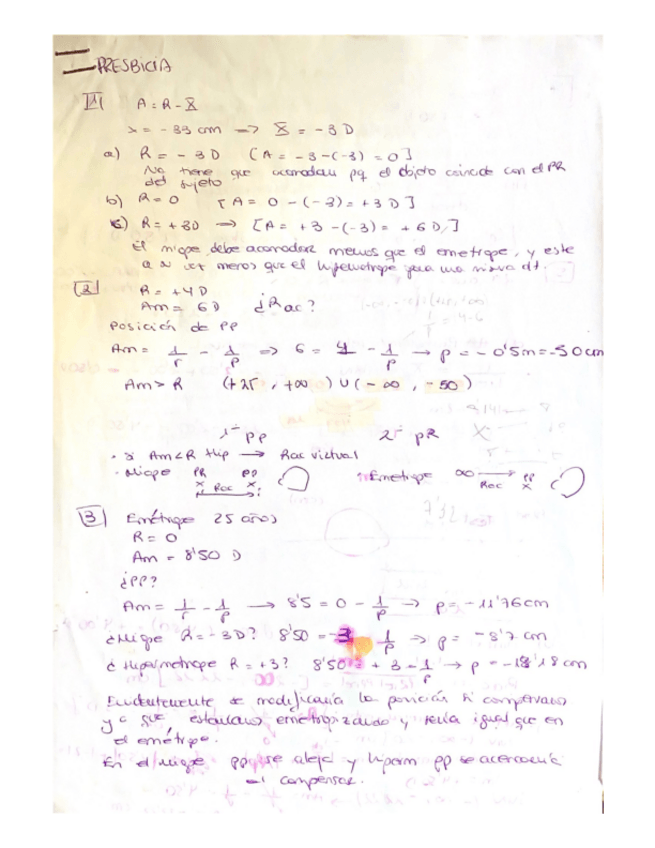 PRESBICIA
1 A = R - X̄
x = -33 cm => X̄ = -3D
a) R = -3D [A = -3-(-3) = 0]
No tiene que acomodar pq el objeto coincide con el PR
del sujeto
b) R = 0 [A = 0-(-3) = +3D]
c) R = +3D → [A = +3-(-3) = +6D]
El miope debe acomodar menos que el emetrope, y este
a su vez menos que el hipermetrope para una misma dt.
2 R = +4D
Am = 6D ¿Rac?
Posición de PP
Am = 1/r - 1/p => 6 = 4 - 1/p → p = -0'5m = -50cm
Am > R (+25, +∞) ∪ (-∞, -50)
1º PP 2º PR
· si Am<R Hip → Rac virtual
· Miope PR PP · Emetrope ∞ → PP
x Rac x Rac x
3 Emétrope 25 años
R = 0
Am = 8'50 D
¿PP?
Am = 1/r - 1/p → 8'5 = 0 - 1/p → p = -11'76cm
¿Miope R = -3D? 8'50 = -3 1/p => p = -8'7 cm
¿Hipermetrope R = +3? 8'50 = +3 - 1/p → p = -18'18cm
Evidentemente se modificaría la posición si compensamos
ya que, estamos emetropizando y sería igual que en
el emétrope.
En el miope pp se aleja y hiperm pp se acercaría
al compensar.